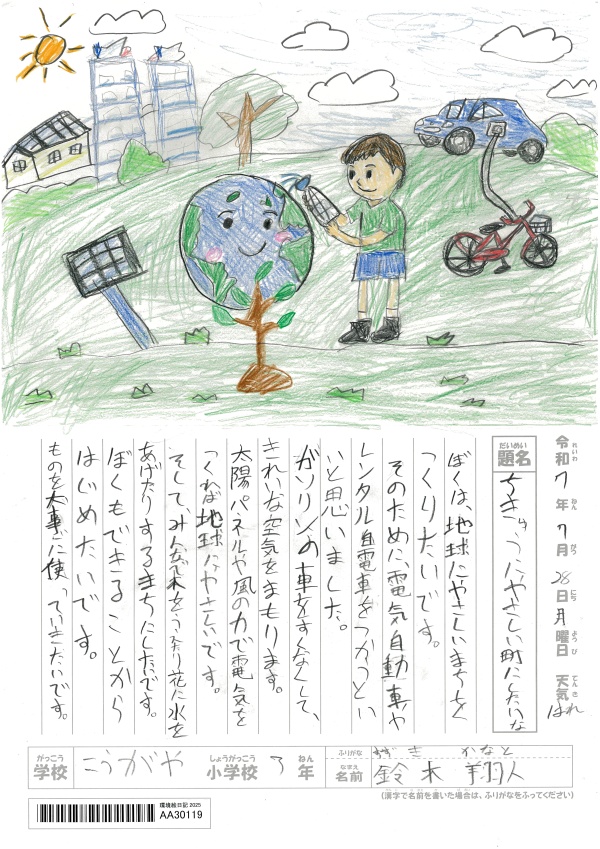 令和7年7月28日月曜日 天気はれ
れいわ ねん がつ にち ようび てんき
だいめい
題名
ちきゅうにやさしい町にしたいな
ぼくは、地球にやさしいまちを
つくりたいです。
そのために、電気自動車や
レンタル自電車をつかうとい
いと思いました。
ガソリンの車をすくなくして、
きれいな空気をまもります。
太陽パネルや風の力で電気を
つくれば地球にやさしいです。
そして、みんなで木をうえたり花に水を
あげたりするまちにしたいです。
ぼくもできることから
はじめたいです。
ものを大事に使っていきたいです。
がっこう しょうがっこう ねん
学校 こうがや 小学校 3年
ふりがな かなと
なまえ
名前 鈴木 翔人
(漢字で名前を書いた場合は、ふりがなをふってください)
環境絵日記 2025
AA30119